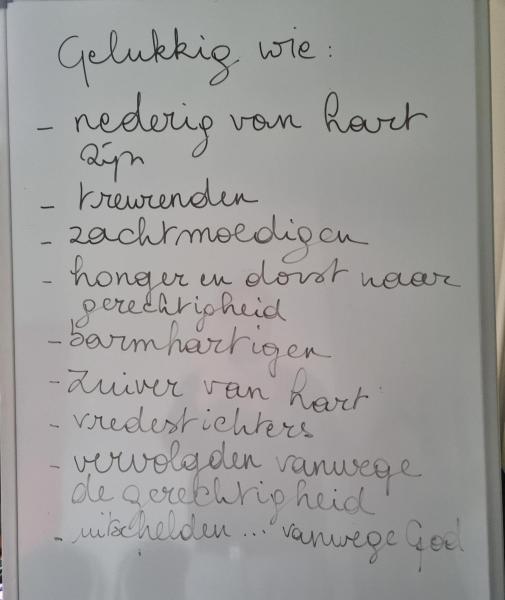 Gelukkig wie:
- nederig van hart
zijn
- treurenden
- zachtmoedigen
- honger en dorst naar
gerechtigheid
- barmhartigen
- zuiver van hart
- vredestichters
- vervolgden vanwege
de gerechtigheid
- uitschelden ... vanwege God